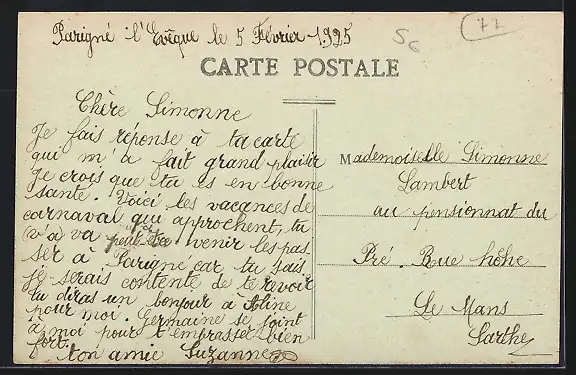 Parigné l'Evêque le 5 Février 1925
5c
77
CARTE POSTALE
Chère Simonne
Je fais réponse à ta carte
qui m'a fait grand plaisir
Je crois que tu es en bonne
santé. Voici les vacances de
carnaval qui approchent, tu
va peut être venir les pas
ser à Parigné car tu sais
je serais contente de te revoir
tu diras un bonjour a Aline
pour moi. Germaine se joint
à moi pour t'emprasser bien
fort.
ton amie Suzanne
Mademoiselle Simonne
Lambert
au pensionnat du
Pré. Rue hôhe
Le Mans
Sarthe